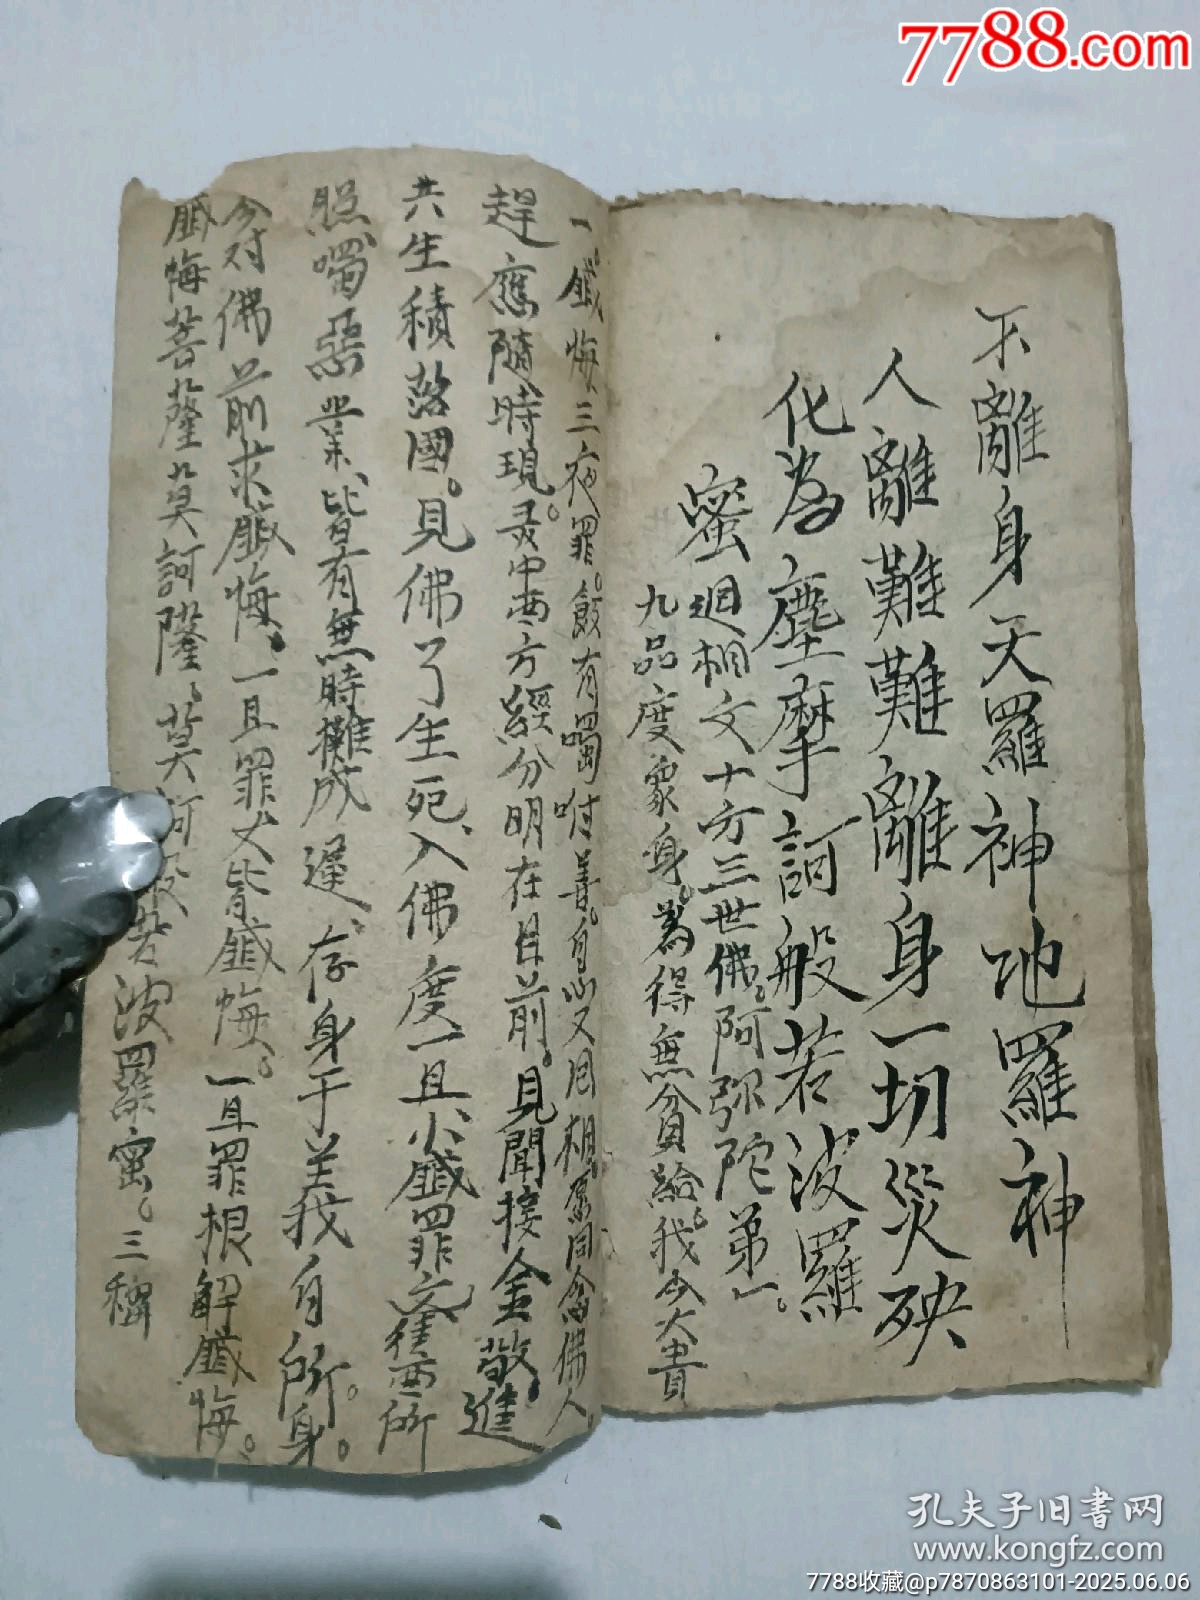 7788.com
不離身天羅神地羅神
人離難難離身一切災殃
化為塵摩訶般若波羅
蜜
迴相文十方三世佛。阿弥陀第一。
九品度眾身。為得無貧給。我今大貴
一。懺悔三夜罪。有囑咐善。自心又回相。同佛人。
趕應隨時現。灵中西方經分明在目前。見聞接金敬進
共生積落國。見佛了生死、入佛度一且小懺罪所
照囑惡業、皆有無時難成遲、存身于我自所。身。
今对佛前求懺悔。一且罪丈皆懺悔。一且罪根解懺悔。
懺悔菩薩莫訶薩、莫訶般若波羅蜜。三稱
孔夫子旧书网
www.kongfz.com
7788收藏@p7870863101-2025.06.06